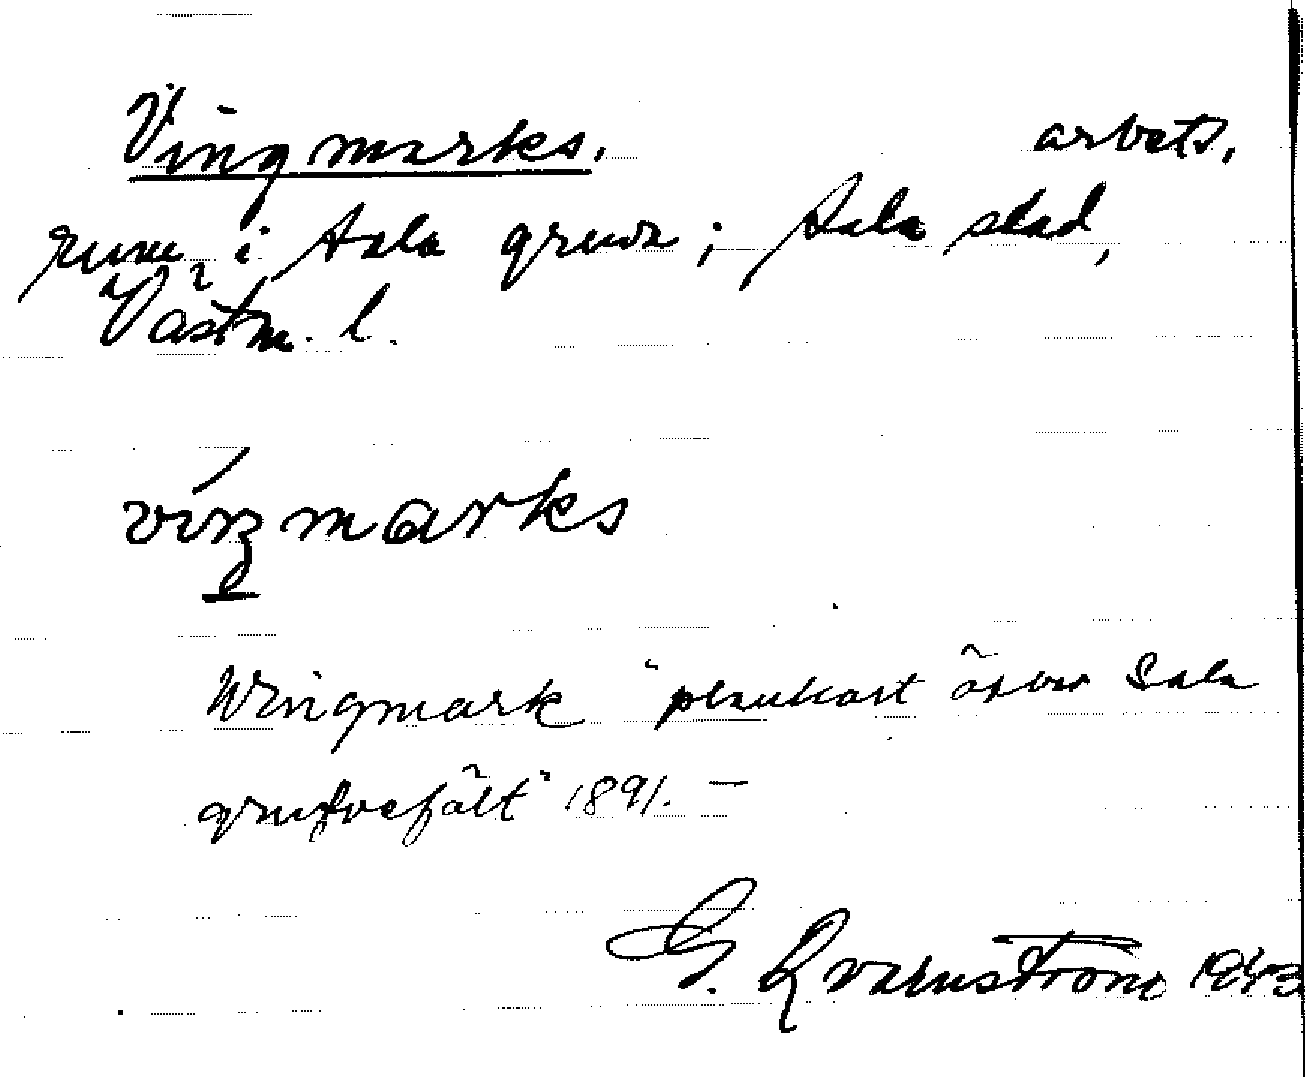 Vingmarks. arbets,
rum i Sala gruva; Sala stad,
Västm. l.
viŋmarks
Wingmark "plankart öfver Sala
grufvefält" 1891. —
G. Qvarnström 1943